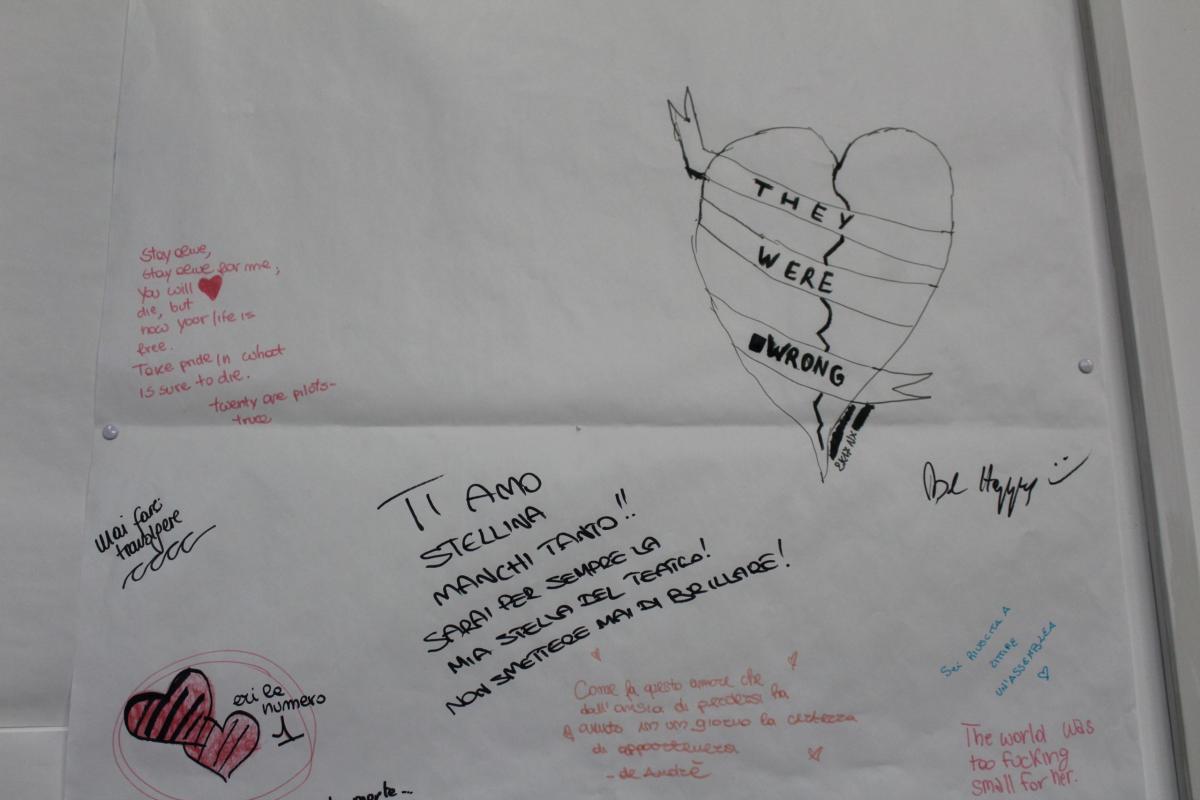 THEY
WERE
WRONG
2K17 NX
Stay alive,
stay alive for me;
you will
die, but
now your life is
free.
Take pride in what
is sure to die.
twenty one pilots-
truce
Be Happy :)
TI AMO
STELLINA
MANCHI TANTO!!
SARAI PER SEMPRE LA
MIA STELLA DEL TEATRO!
NON SMETTERE MAI DI BRILLARE!
Mai fare
eri la
numero
1
Sei RIUSCITA A
UN'ASSEMBLEA
Come fa questo amore che
dall'ansia di perdersi ha
avuto in un giorno la certezza
di appartenersi
- de Andrè
The world was
too fucking
small for her.